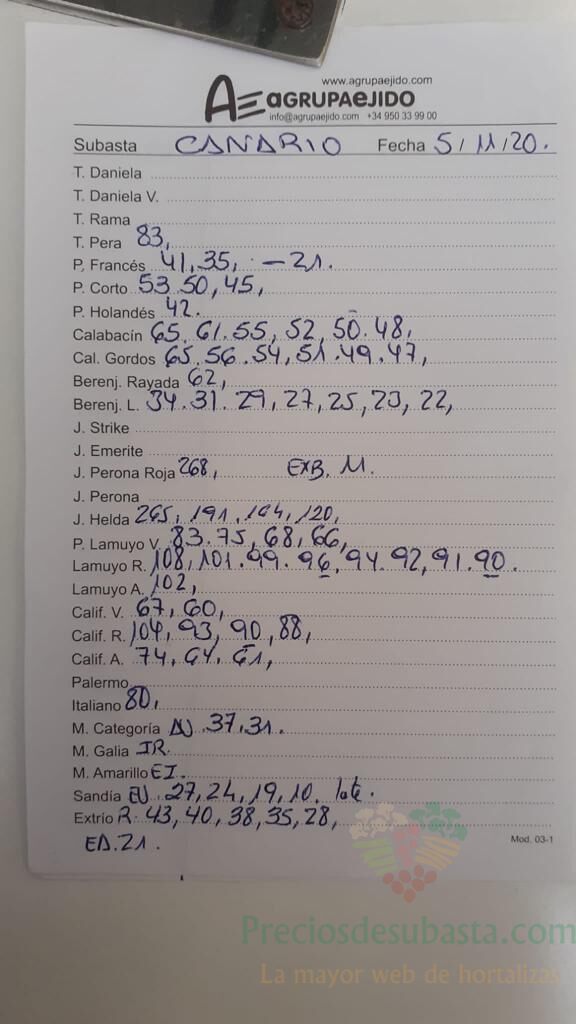 www.agrupaejido.com
AE aGRUPAeJIDO
info@agrupaejido.com +34 950 33 99 00
Subasta CANARIO Fecha 5/11/20.
T. Daniela
T. Daniela V.
T. Rama
T. Pera 83,
P. Francés 41,35, -21.
P. Corto 53.50,45,
P. Holandés 42.
Calabacín 65.61.55,52,50.48,
Cal. Gordos 65.56.54,51.49.47,
Berenj. Rayada 62,
Berenj. L. 34.31.29,27,25,23,22,
J. Strike
J. Emerite
J. Perona Roja 268, EXB. M.
J. Perona
J. Helda 265,191.164,120,
P. Lamuyo V. 83.75,68,66,
Lamuyo R. 108,101.99.96,94.92,91.90.
Lamuyo A. 102,
Calif. V. 67,60,
Calif. R. 104,93,90,88,
Calif. A. 74,64,61,
Palermo
Italiano 80,
M. Categoría 37,31.
M. Galia IR.
M. Amarillo EI.
Sandía EU.27,24,19,10.
Extrio R.43,40,38,35,28,
ED.21.
Mod. 03-1
Preciosdesubasta.com
La mayor web de hortalizas